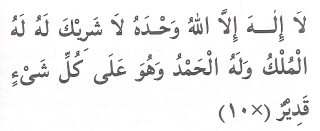 لَا إِلَـــهَ إِلَّا اللهُ وَحْدَهُ لَا شَرِيْكَ لَهُ لَهُ
الْمُلْكُ وَلَهُ الْحَمْدُ وَهُوَ عَلَى كُلِّ شَيْءٍ
قَدِيْرٌ (×١٠)